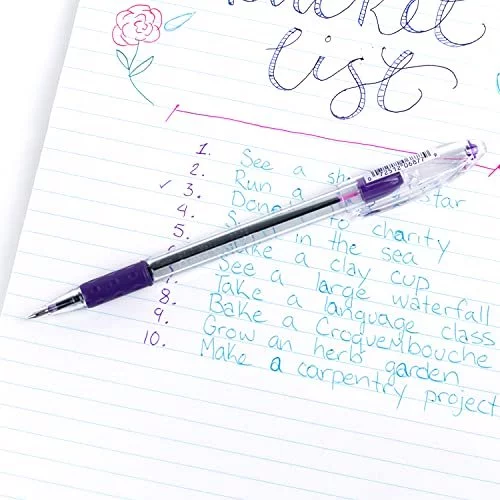 List
1. See a star
2. Run a
✓ 3. to charity
4. in the sea
5. a clay cup
See a large waterfall
7. Take a language class
8. Bake a Croquembouche
9. Grow an herb garden
10. Make a carpentry project